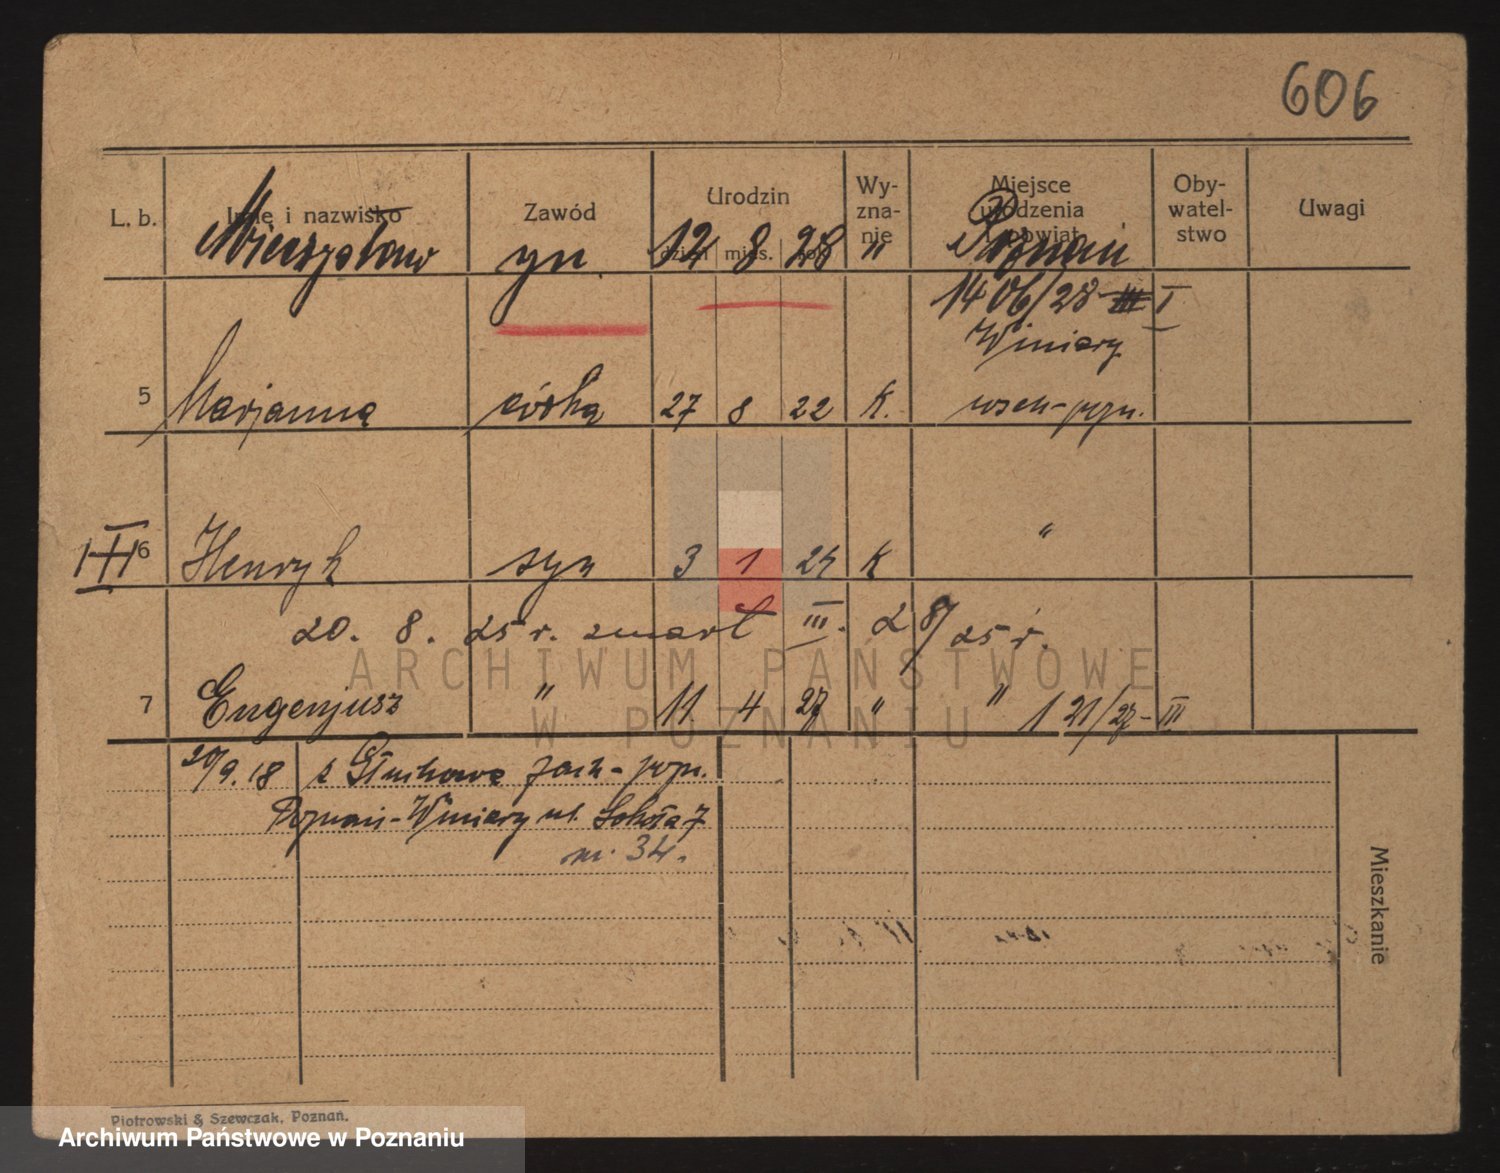 606
L. b. Imię i nazwisko Zawód Urodzin dzień mies. rok Wy-zna-nie Miejsce urodzenia powiat Oby-watel-stwo Uwagi
Mieczysław syn 12 8 28 " Poznań
1406/28 III I
Winiary
5 Marjanna córka 27 8 22 K. wsch-pozn.
6 Henryk syn 3 1 24 K "
20. 8. 25 r. zmarł III. 28/25 r.
ARCHIWUM PAŃSTWOWE
7 Eugenjusz " 11 4 27 " " 121/27-III
W POZNANIU
20/9.18 z Głuchowa zach-pozn.
Poznań-Winiary ul. Sokoła 7
m. 34.
Mieszkanie
Piotrowski & Szewczak, Poznań.
Archiwum Państwowe w Poznaniu